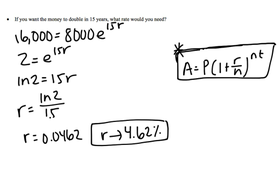 • If you want the money to double in 15 years, what rate would you need?
16,000 = 8000e^15r
2 = e^15r
ln2 = 15r
r = ln2/15
r = 0.0462
r → 4.62%
* A = P(1 + r/n)^nt